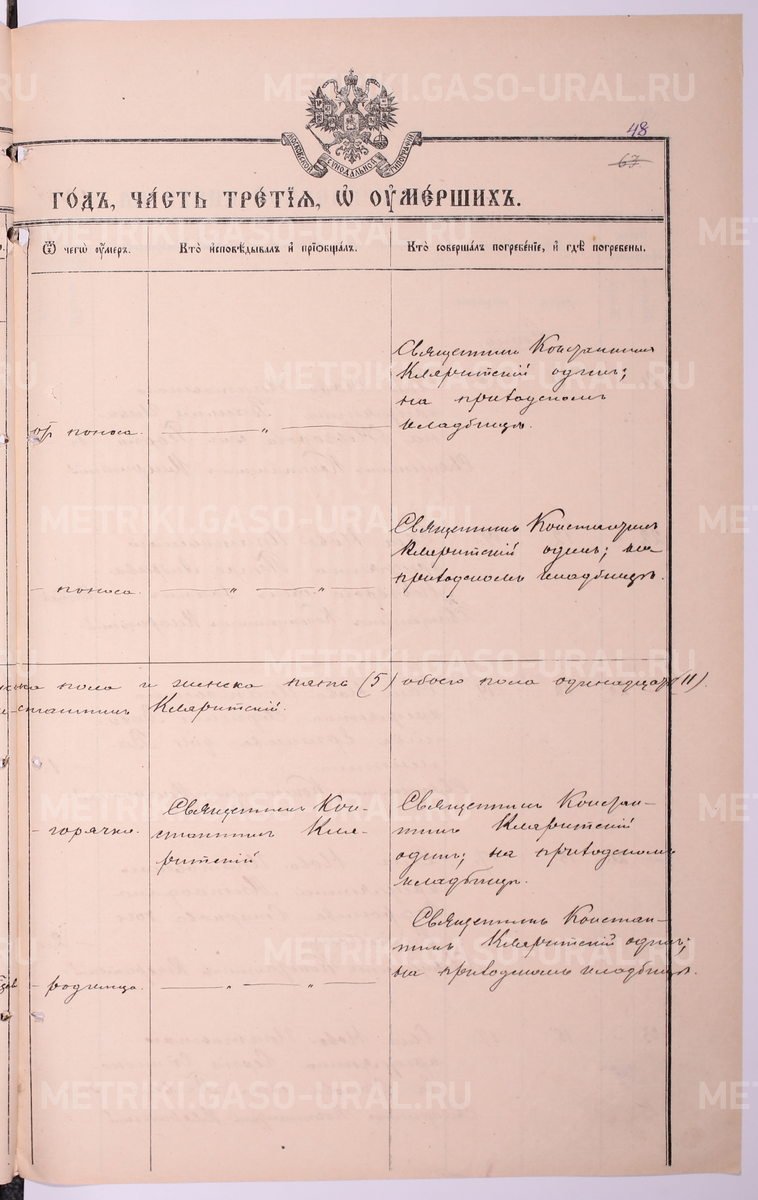 48
67
МОСКОВСКОЙ СУНОДАЛЬНОЙ ТИПОГРАФІИ
ГОДЪ, ЧАСТЬ ТРЕТІѦ, Ѡ ОУМЕРШИХЪ.
Ѿ чегѡ оумеръ.
Кто исповѣдывалъ и приобщалъ.
Кто совершалъ погребеніе, и гдѣ погребены.
отъ поноса.
— „ —
Священникъ Константинъ
Кляритскій одинъ;
на приходскомъ
кладбищѣ.
— поноса.
— „ — „ —
Священникъ Константинъ
Кляритскій одинъ; на
приходскомъ кладбищѣ.
пола и женска пять (5) обоего пола одинадцать (11).
Кляритскій.
— горячка.
Священникъ Кон-
стантинъ Кля-
ритскій
Священникъ Констан-
тинъ Кляритскій
одинъ; на приходскомъ
кладбищѣ.
— родимца.
— „ — „ —
Священникъ Констан-
тинъ Кляритскій одинъ;
на приходскомъ кладбищѣ.
METRIKI.GASO-URAL.RU